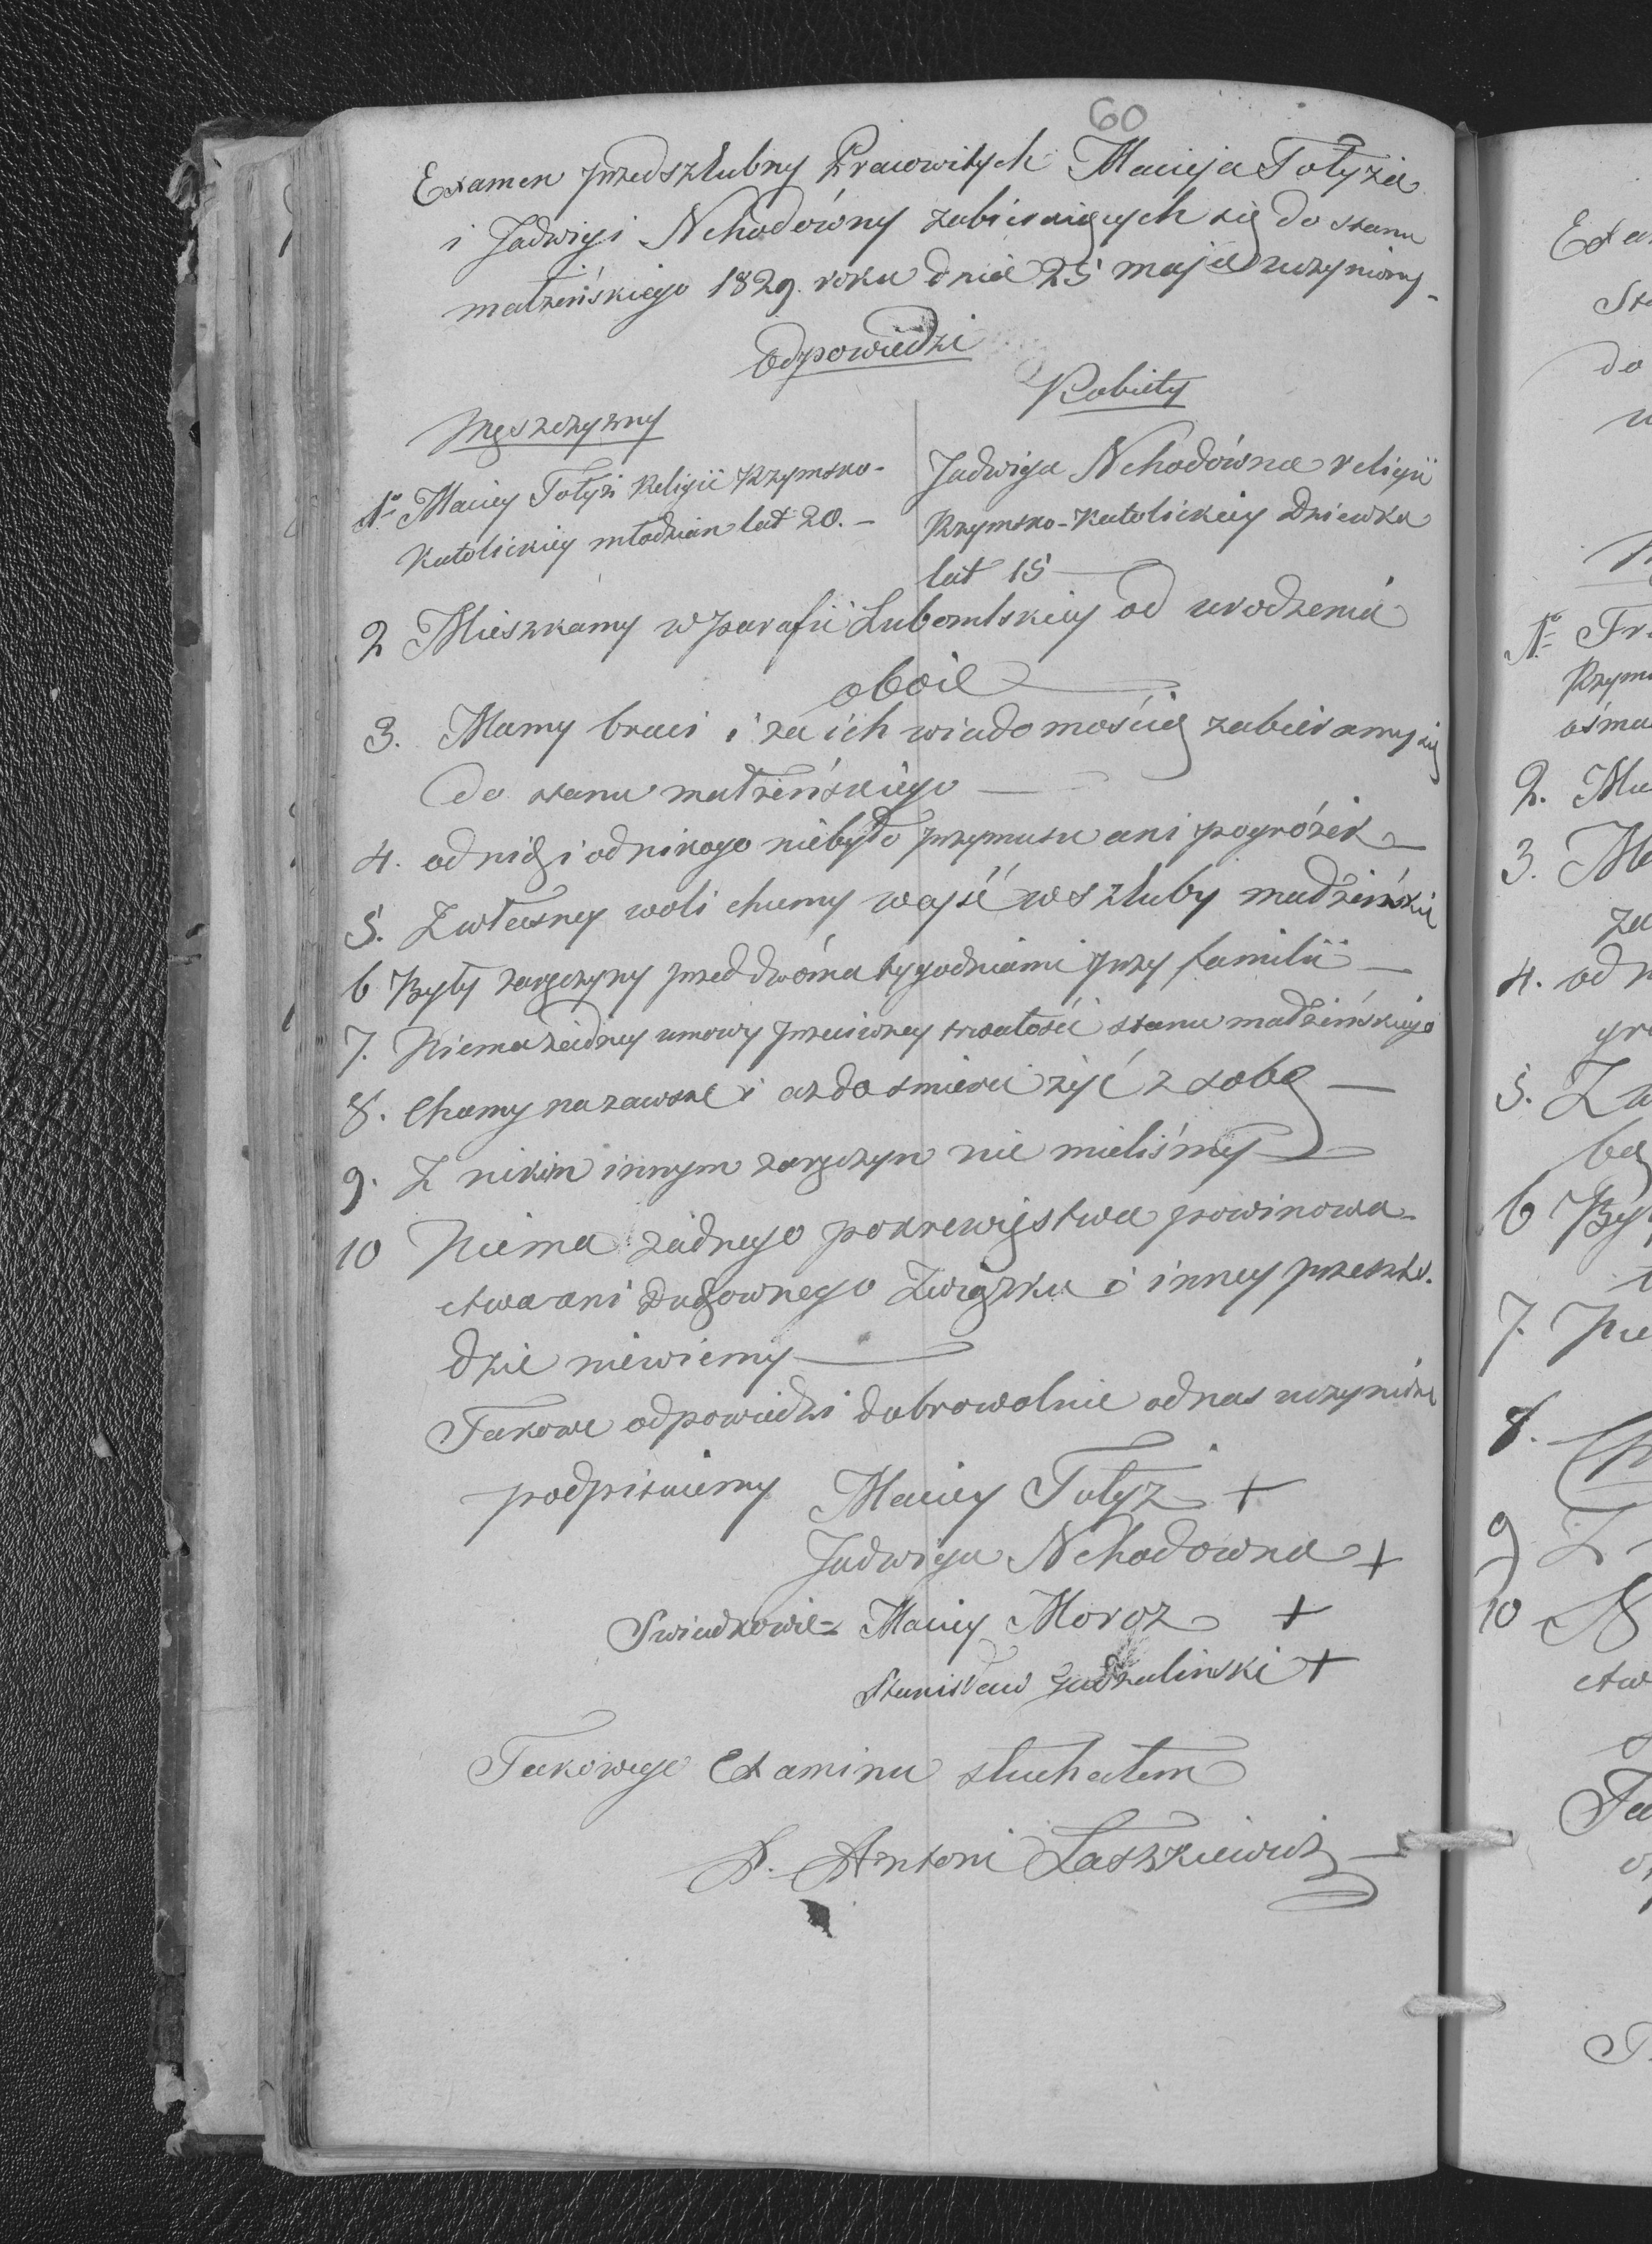 60
Examen przedszlubny Pracowitych Macieja Tołyża
i Jadwigi Nehodówny zabieraiących się do stanu
małżeńskiego 1829. roku dnia 25 maja uczyniony -
Odpowiedzi
Męszczyzny
Kobiety
1o Maciey Tołyż Religii Rzymsko-
Katolickiey młodzian lat 20. -
Jadwiga Nehodówna religii
Rzymsko-Katolickiey Dziewka
lat 15
2 Mieszkamy w parafii Lubomlskiey od urodzenia
oboie
3. Mamy braci i za ich wiadomością zabieramy się
do stanu małżeńskiego
4. od nią i od nikogo niebyło przymusu ani pogróżek
5. Z własney woli chcemy wejść w szluby madżeńskie
6 Były zaręczyny przed dwóma tygodniami przy familii
7. Niema żadney umowy przeciwney trwałości stanu madżeńskiego
8. Chcemy na zawsze i aż do śmierci żyć z sobą
9. Z nikim innym zaręczyn nie mieliśmy
10 Niema żadnego pokrewięstwa powinowa-
ctwa ani duchownego Związku i inney przeszko-
dzie niewiemy
Takowe odpowiedzi dobrowolnie od nas uczynióne
podpisuiemy Maciey Tołyż +
Jadwiga Nehodowna +
Swiadkowie = Maciey Moroz +
Stanisław +
Takowego Examinu słuchałem
X. Antoni Laszkiewicz
Exa
do
1o
2.
3.
4. od
5. Za
6 By
7. Nie
8.
9 Z
10
ctw